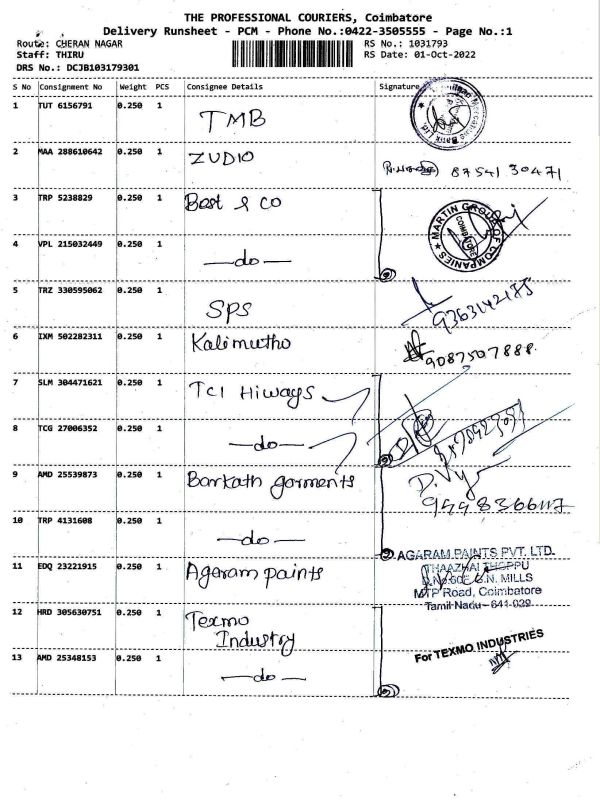 THE PROFESSIONAL COURIERS, Coimbatore
Delivery Runsheet - PCM - Phone No.:0422-3505555 - Page No.:1
Route: CHERAN NAGAR RS No.: 1031793
Staff: THIRU RS Date: 01-Oct-2022
DRS No.: DCJB103179301
S No Consignment No Weight PCS Consignee Details Signature
1 TUT 6156791 0.250 1 TMB
2 MAA 288610642 0.250 1 ZUDIO 87541 30471
3 TRP 5238829 0.250 1 Best & co
MARTIN GROUP OF COMPANIES COIMBATORE
4 VPL 215032449 0.250 1 —do— 2
5 TRZ 330595062 0.250 1 SPS 9363142175
6 IXM 502282311 0.250 1 Kalimutho 9087507888
7 SLM 304471621 0.250 1 TCI Hiways
8 TCG 27006352 0.250 1 —do— 2
9 AMD 25539873 0.250 1 Barkath garments D.Vy
10 TRP 4131608 0.250 1 —do— 2
11 EDQ 23221915 0.250 1 Ageram paints
AGARAM PAINTS PVT. LTD.
THAAZHAI THOPPU
D.No.60E, G.N. MILLS
MTP Road, Coimbatore
Tamil Nadu - 641 029
12 HRD 305630751 0.250 1 Texmo
Industry
For TEXMO INDUSTRIES
13 AMD 25348153 0.250 1 —do— 2